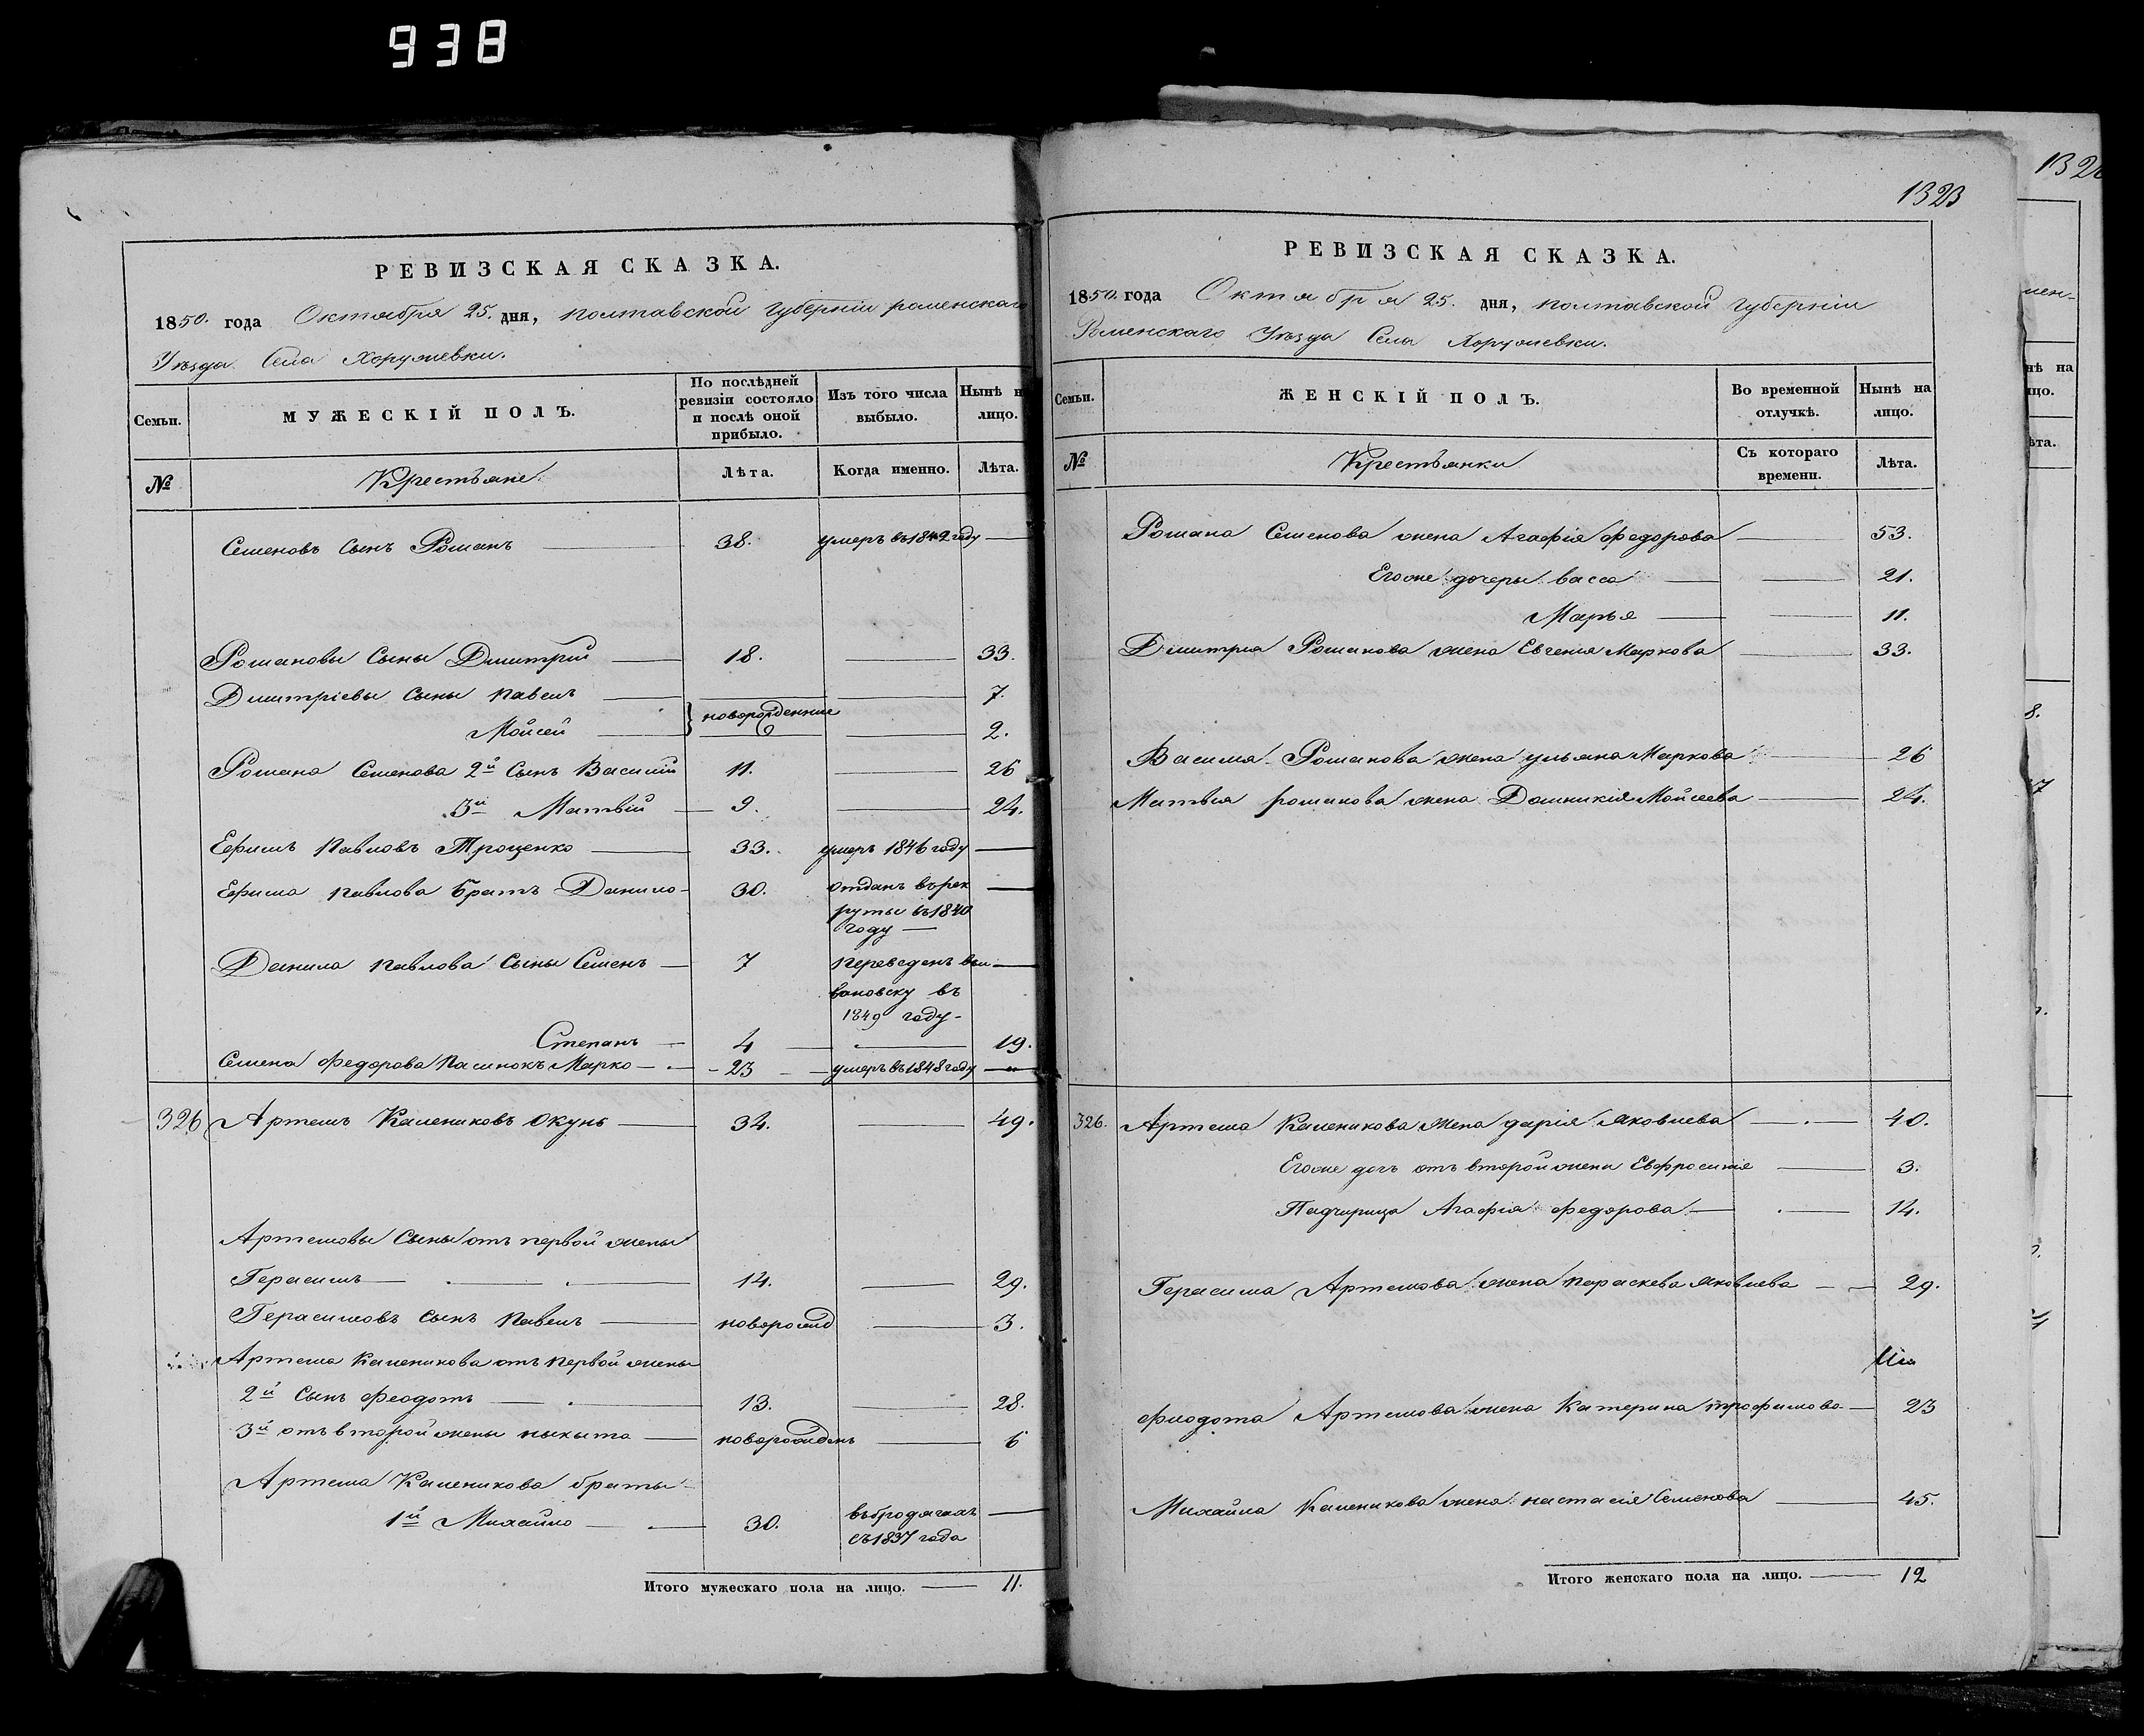 938
РЕВИЗСКАЯ СКАЗКА.
1850. года Октября 25. дня, полтавской Губерніи роменскаго
Уѣзда Села Хоружевки.
Семьи.
МУЖЕСКІЙ ПОЛЪ.
По послѣдней ревизіи состояло и послѣ оной прибыло.
Изъ того числа выбыло.
Нынѣ на лицо.
№
Крестьяне
Лѣта.
Когда именно.
Лѣта.
Семеновъ сынъ Романъ 38. умеръ въ 1842 году
Романовы сыны Дмитрій 18. 33.
Дмитріевы сыны павелъ 7.
Мойсей новорожденные 2.
Романа Семенова 2й сынъ Василій 11. 26
3й Матвій 9. 24.
Ефимъ Павловъ Троценко 33. умеръ 1846 году
Ефима павлова братъ Данило 30. отданъ въ рек
руты въ 1840
году
Данила павлова сыны Семенъ 7 переведенъ
въ
1849 году
Степанъ 4 19.
Семена Федорова пасинокъ Марко 23 умеръ въ 1848 году
326 Артемъ Калениковъ Окунь 34. 49.
Артемовы сыны отъ первой жены
Герасимъ 14. 29.
Герасимовъ сынъ павелъ новорожд 3.
Артема Каленикова отъ первой жены
2й сынъ Феодотъ 13. 28.
3й отъ второй жены ныкыта новорожденъ 6
Артема Каленикова браты
1й Михайло 30. въ бродягахъ
съ 1837 года
Итого мужескаго пола на лицо. 11.
1323
РЕВИЗСКАЯ СКАЗКА.
1850. года Октября 25. дня, полтавской Губерніи
Роменскаго Уѣзда Села Хоружевки.
Семьи.
ЖЕНСКІЙ ПОЛЪ.
Во временной отлучкѣ.
Нынѣ на лицо.
№
Крестьянки
Съ котораго времени.
Лѣта.
Романа Семенова жена Агафія Федорова 53.
Егоже дочеры васса 21.
Марья 11.
Дмитрия Романова жена Евгения Маркова 33.
Василя Романова жена ульяна Маркова 26
Матвия романова жена Домникия Мойсеева 24.
326. Артема Каленикова жена дарія яковлева 40.
Егоже дочь отъ второй жены Евфросинія 3.
Падчирица Агафія федорова 14.
Герасима Артемова жена параскева яковлева 29.
феодота Артемова жена Катерина трофимова 23
Михайла Каленикова жена настасія Семенова 45.
Итого женскаго пола на лицо. 12